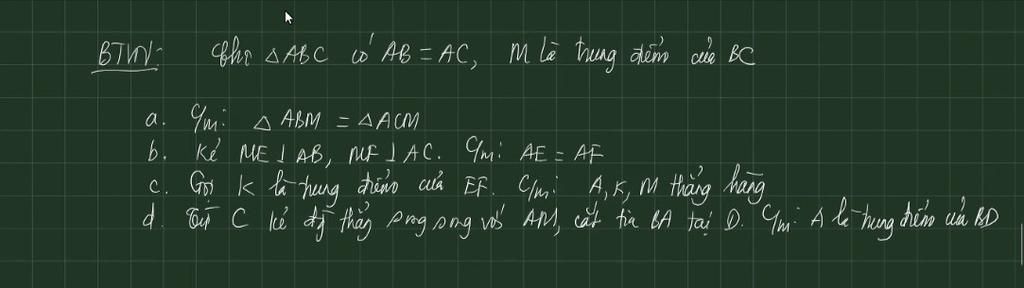 BTVN: Cho △ABC có AB = AC, M là trung điểm của BC
a. C/m: △ABM = △ACM
b. Kẻ ME ⊥ AB, MF ⊥ AC. C/m: AE = AF
c. Gọi K là trung điểm của EF. C/m: A, K, M thẳng hàng
d. Từ C kẻ đg thẳng song song với AM, cắt tia BA tại D. C/m: A là trung điểm của BD